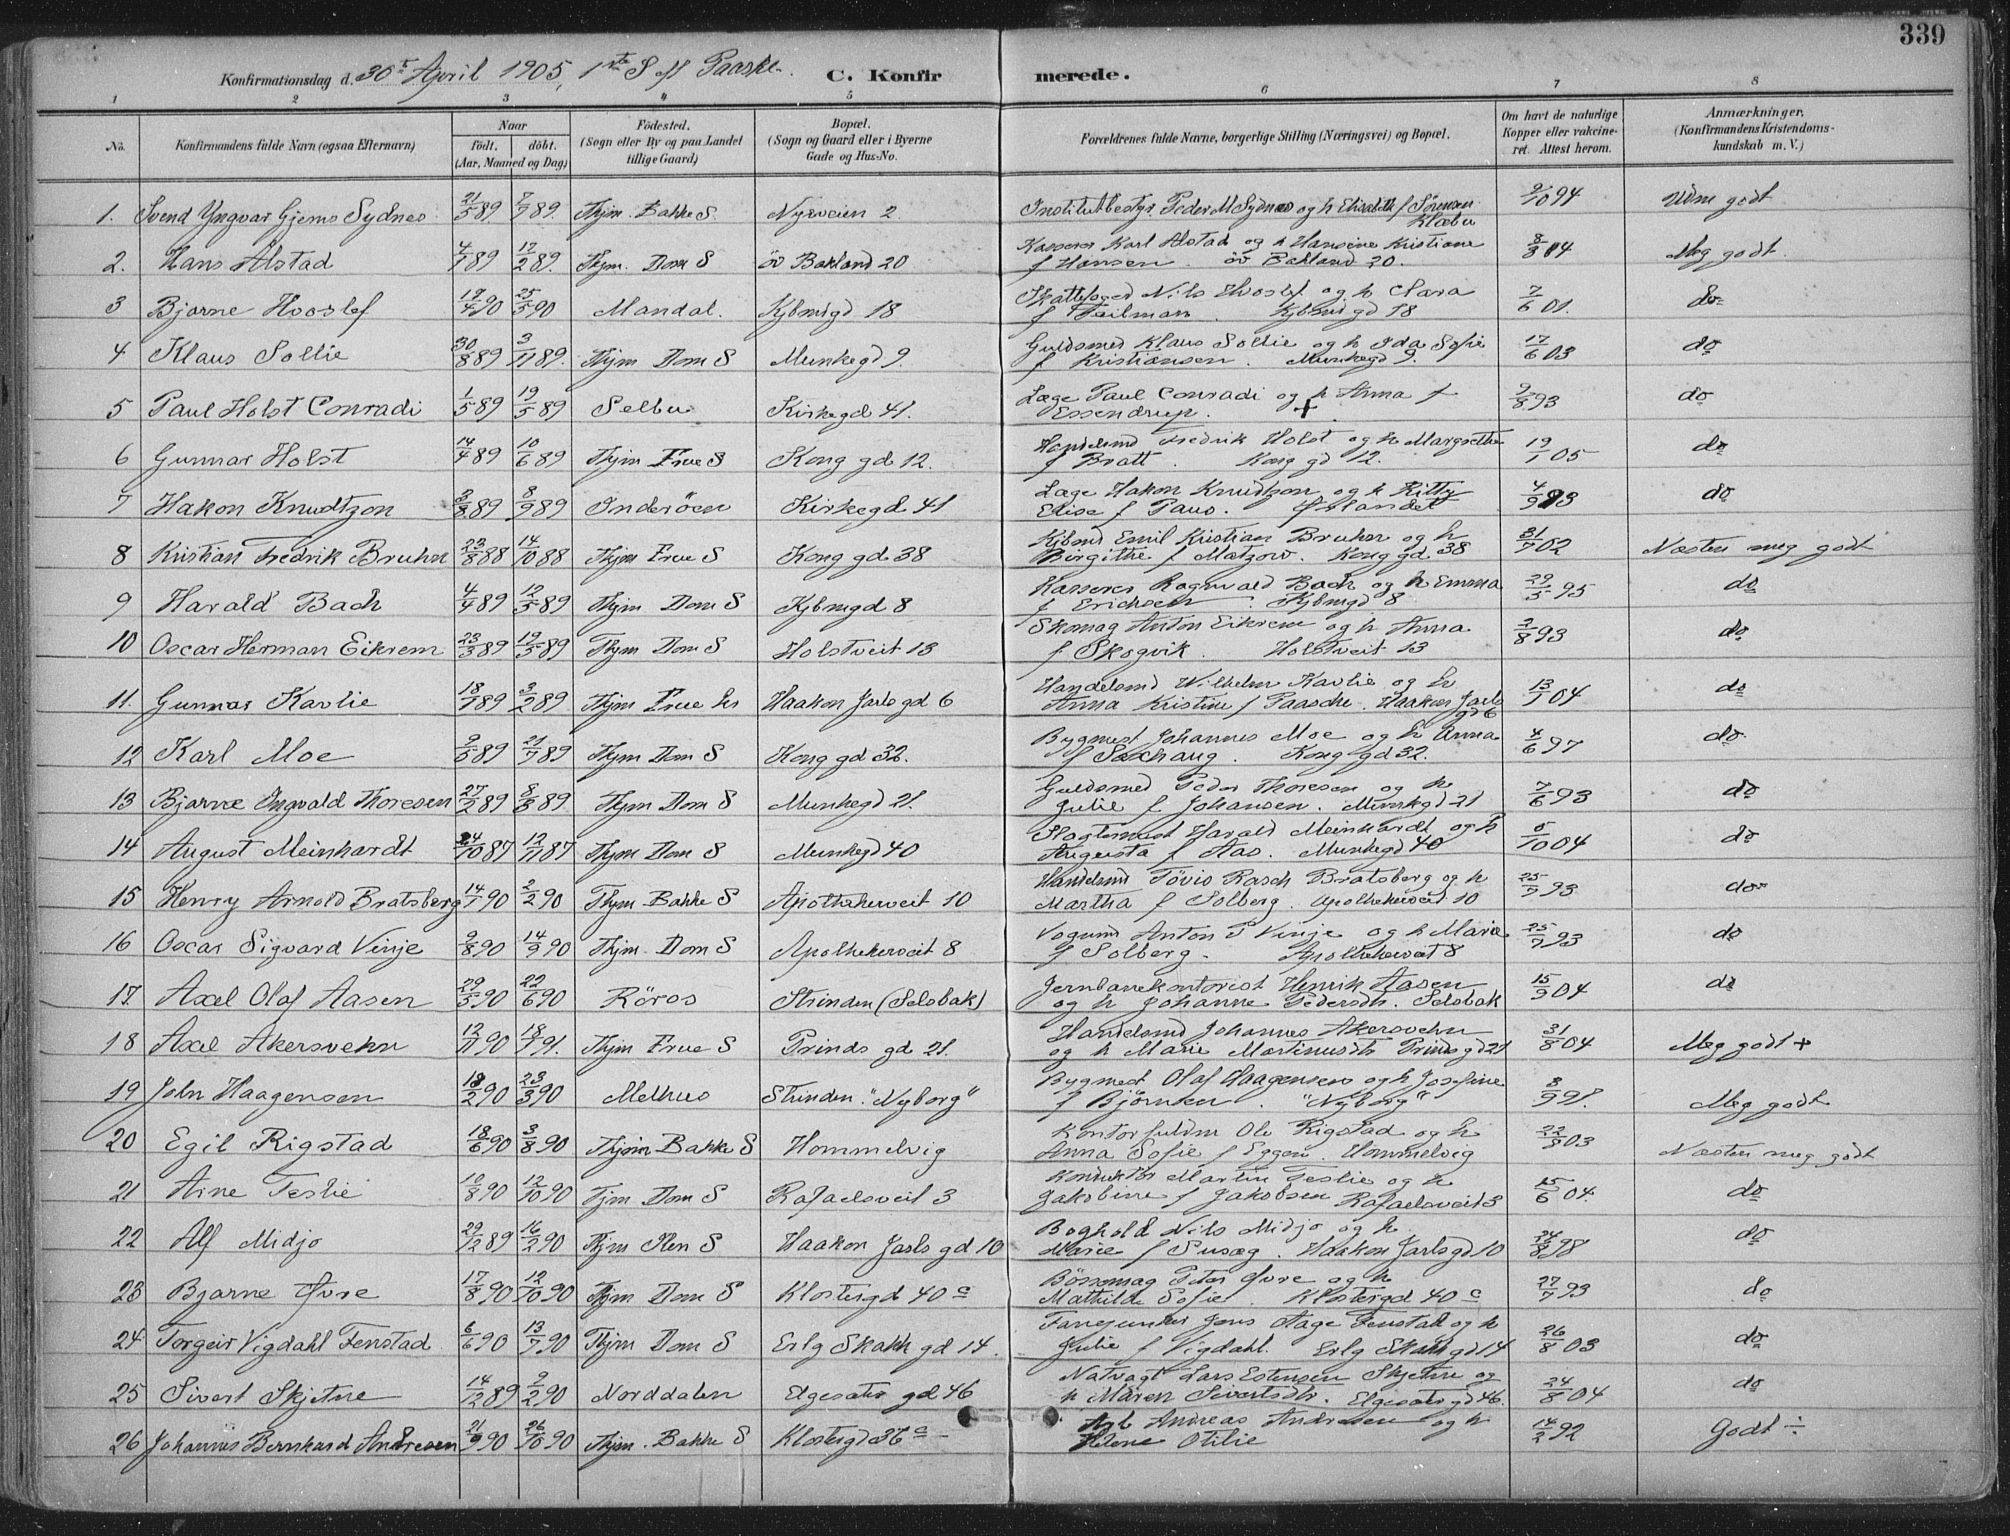 339
Konfirmationsdag d. 30te April 1905, 1ste S. eft. Paaske. C. Konfirmerede.
1 2 3 4 5 6 7 8
No. Konfirmandens fulde Navn (ogsaa Efternavn) Naar födt. döbt. (Aar, Maaned og Dag) Födested. (Sogn eller By og paa Landet tillige Gaard) Bopæl. (Sogn og Gaard eller i Byerne Gade og Hus-No. Forældrenes fulde Navne, borgerlige Stilling (Næringsvei) og Bopæl. Om havt de naturlige Kopper eller vakcineret. Attest herom. Anmærkninger. (Konfirmandens Kristendomskundskab m. V.)
1. Svend Yngvar Gjems Sydnes 21/5 89 7/7 89. Thjm. Bakke S. Nyveien 2 Institutbestyr. Peder M Sydnes og h Elisabeth f Sørensen Klæbu 2/10 94 Udm godt
2. Hans Alstad 4/1 89 17/2 89. Thjm. Dom S öv Bakland 20 Kasserer Karl Alstad og h Hansine Kristiane f Hansen. öv Bakland 20. 8/8 04 Meg godt.
3 Bjarne Hvoslef 19/4 90 25/5 90 Mandal. Kjbmsgd 18 Skattefoged Nils Hvoslef og h Clara f Feilmann. Kjbmsgd 18 7/6 01. do
4 Klaus Sollie 30/8 89 3/11 89. Thjm Dom S Munkegd 9. Guldsmed Klaus Sollie og h Ida Sofie f Kristiansen. Munkegd 9. 17/6 03 do
5 Paul Holst Conradi 1/5 89 19/5 89 Selbu Kirkegd 41. Læge Paul Conradi og + h Anna f Essendrup. 9/8 93 do
6 Gunnar Holst 14/4 89 10/6 89 Thjm Frue S Kong gd 12. Handelsmd Fredrik Holst og h Margrethe f Bratt. Kong gd 12. 19/1 05 do
7 Hakon Knudtzon 3/8 89 8/9 89 Inderöen Kirkegd 41 Læge Hakon Knudtzon og h Kitty Elise f Paus. Ørlandet 4/9 93 do
8 Kristian Fredrik Bruhn 23/8 88 14/10 88 Thjm Frue S Kong gd 38 Kjbmd Emil Kristian Bruhn og h Birgithe f Matzow. Kong gd 38 31/7 02 Næsten meg godt
9 Harald Bach 4/4 89 12/5 89 Thjm Dom S Kjbmgd 8 Kasserer Ragnvald Bach og h Emma f Erichsen. Kjbmgd 8 29/5 95 do
10 Oscar Herman Eikrem 23/3 89 19/5 89 Thjm Dom S Holstveit 13 Skomag Anton Eikrem og h Anna f Skogvik. Holstveit 13 2/8 93 do
11. Gunnar Kavlie 18/1 89 3/2 89 Thjm Frue S Haakon Jarls gd 6 Handelsmd Wilhelm Kavlie og h Anna Kristine f Paasche. Haakon Jarls gd 6 13/1 04 do
12 Karl Moe 9/5 89 21/7 89 Thjm Dom S Kong gd 32. Bygmest Johannes Moe og h Anna f Saxhaug. Kong gd 32. 4/6 97 do
13 Bjarne Ingvald Thoresen 27/2 89 8/3 89 Thjm Dom S Munkegd 21. Guldsmed Peder Thoresen og h Julie f Johansen. Munkegd 21 7/6 93 do
14 August Meinhardt 24/10 87 12/11 87 Thjm Dom S Munkegd 40 Slagtermest Harald Meinhardt og h Augusta f Aas. Munkegd 40 5/10 04 do
15 Henry Arnold Bratsberg 14/1 90 2/2 90 Thjm Bakke S Apothekerveit 10 Handelsmd Tövis Rasch Bratsberg og h Martha f Solberg. Apothekerveit 10 25/7 93 do
16 Oscar Sigvard Vinje 9/8 90 14/9 90 Thjm Dom S Apothekerveit 8 Vognmd Anton P Vinje og h Marie f Solberg. Apothekerveit 8 25/7 93 do
17. Axel Olaf Aasen 29/5 90 22/6 90 Röros Strinden (Selsbak) Jernbanekontorist Henrik Aasen og h Johanne Pedersdtr. Selsbak 15/9 04 do
18 Axel Akersvehn 12/11 90 18/1 91. Thjm Frue S Prinds gd 21. Handelsmd Johannes Akersvehn og h Marie Martinusdtr Prinds gd 21 31/8 04 Meg godt +
19 John Haagensen 18/2 90 23/3 90 Melhus Strinden. "Nyborg" Bygmest Olaf Haagensen og h Josefine f Björnken. "Nyborg" 8/9 98. Meg godt
20 Egil Rigstad 18/6 90 3/8 90 Thjm Bakke S Hommelvig Kontorfuldm Ole Rigstad og h Anna Sofie f Eggen. Hommelvig 22/9 03 Næsten meg godt
21 Arne Teslie 10/8 90 12/10 90 Tjm Dom S Rafaelsveit 3 Martin Teslie og h Jakobine f Jakobsen Rafaelsveit 3 15/6 04. do
22 Alf Midjo 29/12 89 16/2 90 Thjm Ilen S Haakon Jarls gd 10 Boghold Nils Midjo og h Marie f Susæg. Haakon Jarls gd 10 24/8 98 do
23 Bjarne Øvre 17/8 90 12/10 90 Thjm Dom S Klostergd 40 c Bössemag Peter Øvre og h Mathilde Sofie. Klostergd 40 c 27/7 93 do
24 Torgeir Vigdahl Fenstad 6/6 90 13/7 90 Thjm Dom S Erlg Skakk gd 14. Fanejunker Jens Aage Fenstad og h Julie f Vigdahl. Erlg Skakk gd 14 26/8 03 do
25 Sivert Skjetne 14/12 89 2/2 90 Norddalen Elgesæter gd 46 Natvagt Lars Estensen Skjetne og h Maren Sivertsdtr. Elgesæter gd 46. 24/8 04 do
26 Johannes Bernhard Andresen 21/9 90 26/10 90 Thjm. Bakke S Klostergd 36 c Arb Andreas Andresen og h Helene Otilie 14/2 92 Godt ÷